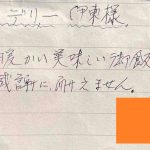 デリー 伊東様
暖かい美味しい御飯
感謝に耐えません。